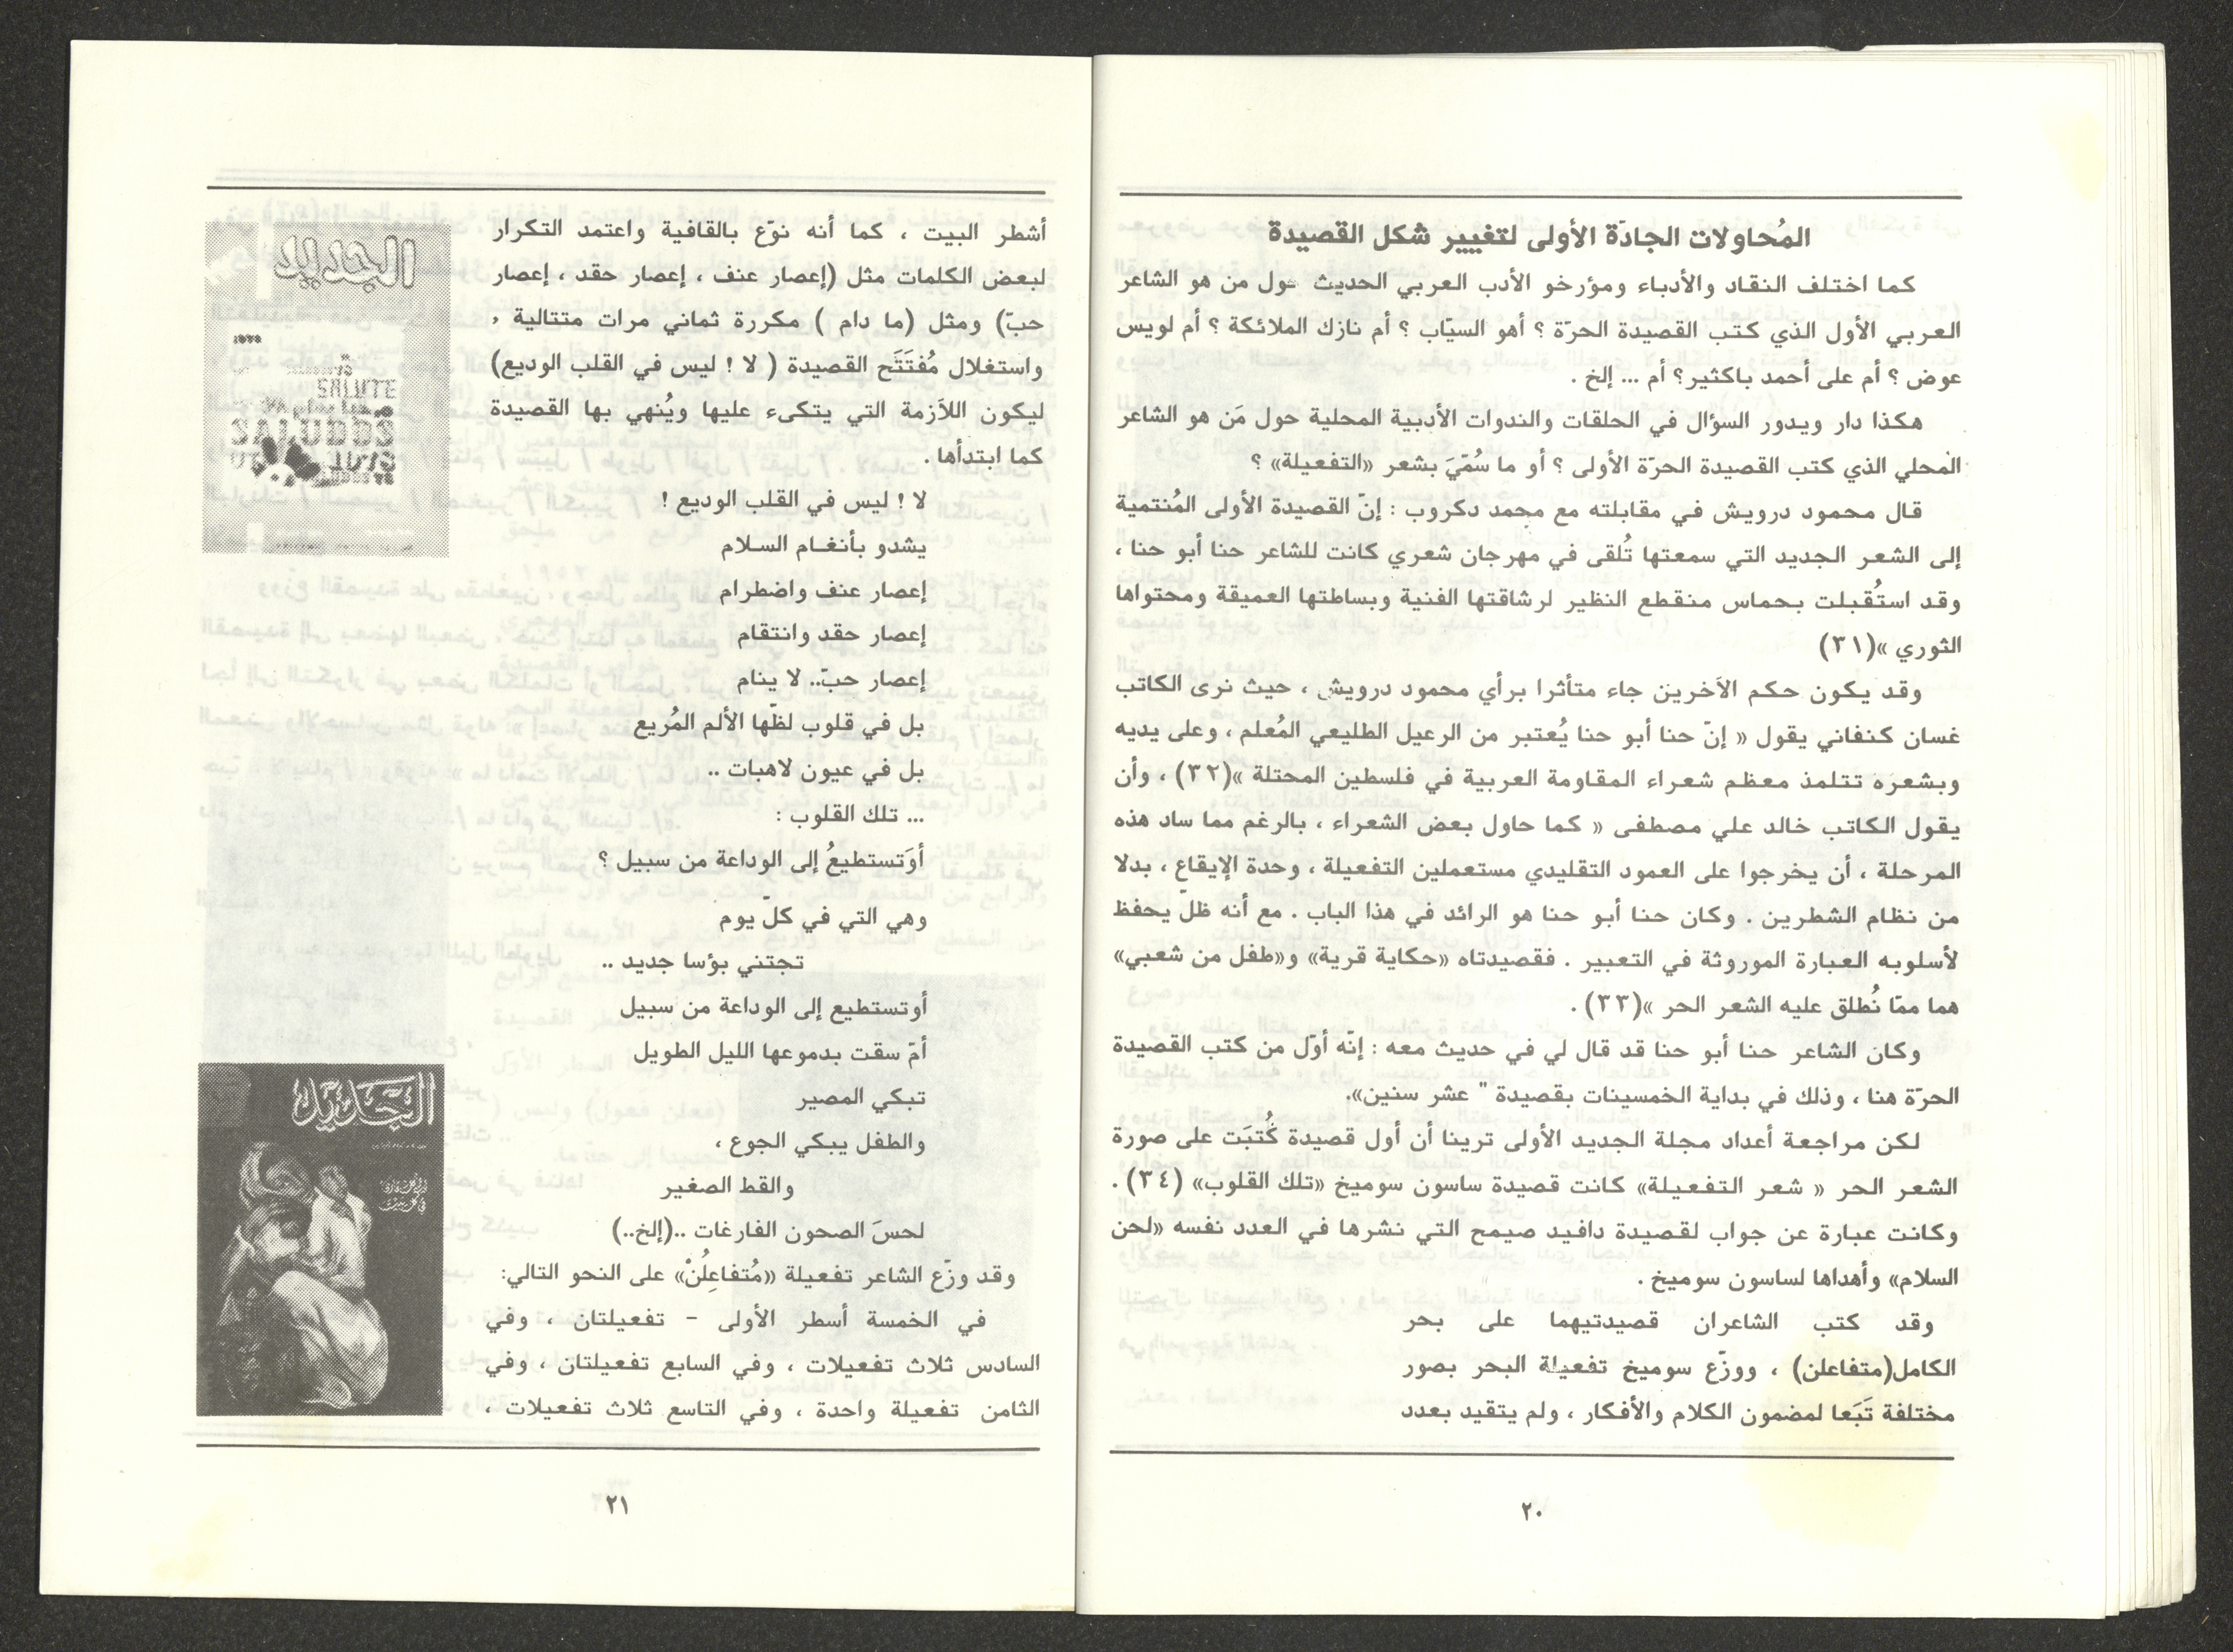 المُحاولات الجادّة الأولى لتغيير شكل القصيدة
كما اختلف النقاد والأدباء ومؤرخو الأدب العربي الحديث حول من هو الشاعر
العربي الأول الذي كتب القصيدة الحرّة ؟ أهو السيّاب ؟ أم نازك الملائكة ؟ أم لويس
عوض ؟ أم على أحمد باكثير؟ أم ... إلخ .
هكذا دار ويدور السؤال في الحلقات والندوات الأدبية المحلية حول مَن هو الشاعر
المحلي الذي كتب القصيدة الحرّة الأولى ؟ أو ما سُمّيَ بشعر «التفعيلة» ؟
قال محمود درويش في مقابلته مع محمد دكروب : إنّ القصيدة الأولى المُنتمية
إلى الشعر الجديد التي سمعتها تُلقى في مهرجان شعري كانت للشاعر حنا أبو حنا ،
وقد استُقبلت بحماس منقطع النظير لرشاقتها الفنية وبساطتها العميقة ومحتواها
الثوري »(٣١)
وقد يكون حكم الآخرين جاء متأثرا برأي محمود درويش ، حيث نرى الكاتب
غسان كنفاني يقول « إنّ حنا أبو حنا يُعتبر من الرعيل الطليعي المُعلم ، وعلى يديه
وبشعره تتلمذ معظم شعراء المقاومة العربية في فلسطين المحتلة »(٣٢) ، وأن
يقول الكاتب خالد علي مصطفى « كما حاول بعض الشعراء ، بالرغم مما ساد هذه
المرحلة ، أن يخرجوا على العمود التقليدي مستعملين التفعيلة ، وحدة الإيقاع ، بدلا
من نظام الشطرين . وكان حنا أبو حنا هو الرائد في هذا الباب . مع أنه ظلّ يحفظ
لأسلوبه العبارة الموروثة في التعبير . فقصيدتاه «حكاية قرية» و«طفل من شعبي»
هما ممّا نُطلق عليه الشعر الحر »(٣٣) .
وكان الشاعر حنا أبو حنا قد قال لي في حديث معه : إنّه أوّل من كتب القصيدة
الحرّة هنا ، وذلك في بداية الخمسينات بقصيدة " عشر سنين».
لكن مراجعة أعداد مجلة الجديد الأولى ترينا أن أول قصيدة كُتبَت على صورة
الشعر الحر « شعر التفعيلة» كانت قصيدة ساسون سوميخ «تلك القلوب» (٣٤) .
وكانت عبارة عن جواب لقصيدة دافيد صيمح التي نشرها في العدد نفسه «لحن
السلام» وأهداها لساسون سوميخ .
وقد كتب الشاعران قصيدتيهما على بحر
الكامل(متفاعلن) ، ووزّع سوميخ تفعيلة البحر بصور
مختلفة تَبَعا لمضمون الكلام والأفكار ، ولم يتقيد بعدد
٢٠
أشطر البيت ، كما أنه نوّع بالقافية واعتمد التكرار
لبعض الكلمات مثل (إعصار عنف ، إعصار حقد ، إعصار
حبّ) ومثل (ما دام ) مكررة ثماني مرات متتالية ,
واستغلال مُفتَتَح القصيدة ( لا ! ليس في القلب الوديع)
ليكون اللاَزمة التي يتكىء عليها ويُنهي بها القصيدة
كما ابتدأها .
لا ! ليس في القلب الوديع !
يشدو بأنغـام السـلام
إعصار عنف واضطرام
إعصار حقد وانتقام
إعصار حبّ.. لا ينام
بل في قلوب لظّها الألم المُريع
بل في عيون لاهبات ..
... تلك القلوب :
أوَتستطيعُ إلى الوداعة من سبيل ؟
وهي التي في كلّ يوم
تجتني بؤسا جديد ..
أوتستطيع إلى الوداعة من سبيل
أمّ سقت بدموعها الليل الطويل
تبكي المصير
والطفل يبكي الجوع ،
والقط الصغير
لحسَ الصحون الفارغات ..(إلخ..)
وقد وزّع الشاعر تفعيلة «مُتفاعِلُنْ» على النحو التالي:
في الخمسة أسطر الأولى - تفعيلتان ، وفي
السادس ثلاث تفعيلات ، وفي السابع تفعيلتان ، وفي
الثامن تفعيلة واحدة ، وفي التاسع ثلاث تفعيلات ،
الجديد
SALUTE
SALUDOS
الجديد
٢١